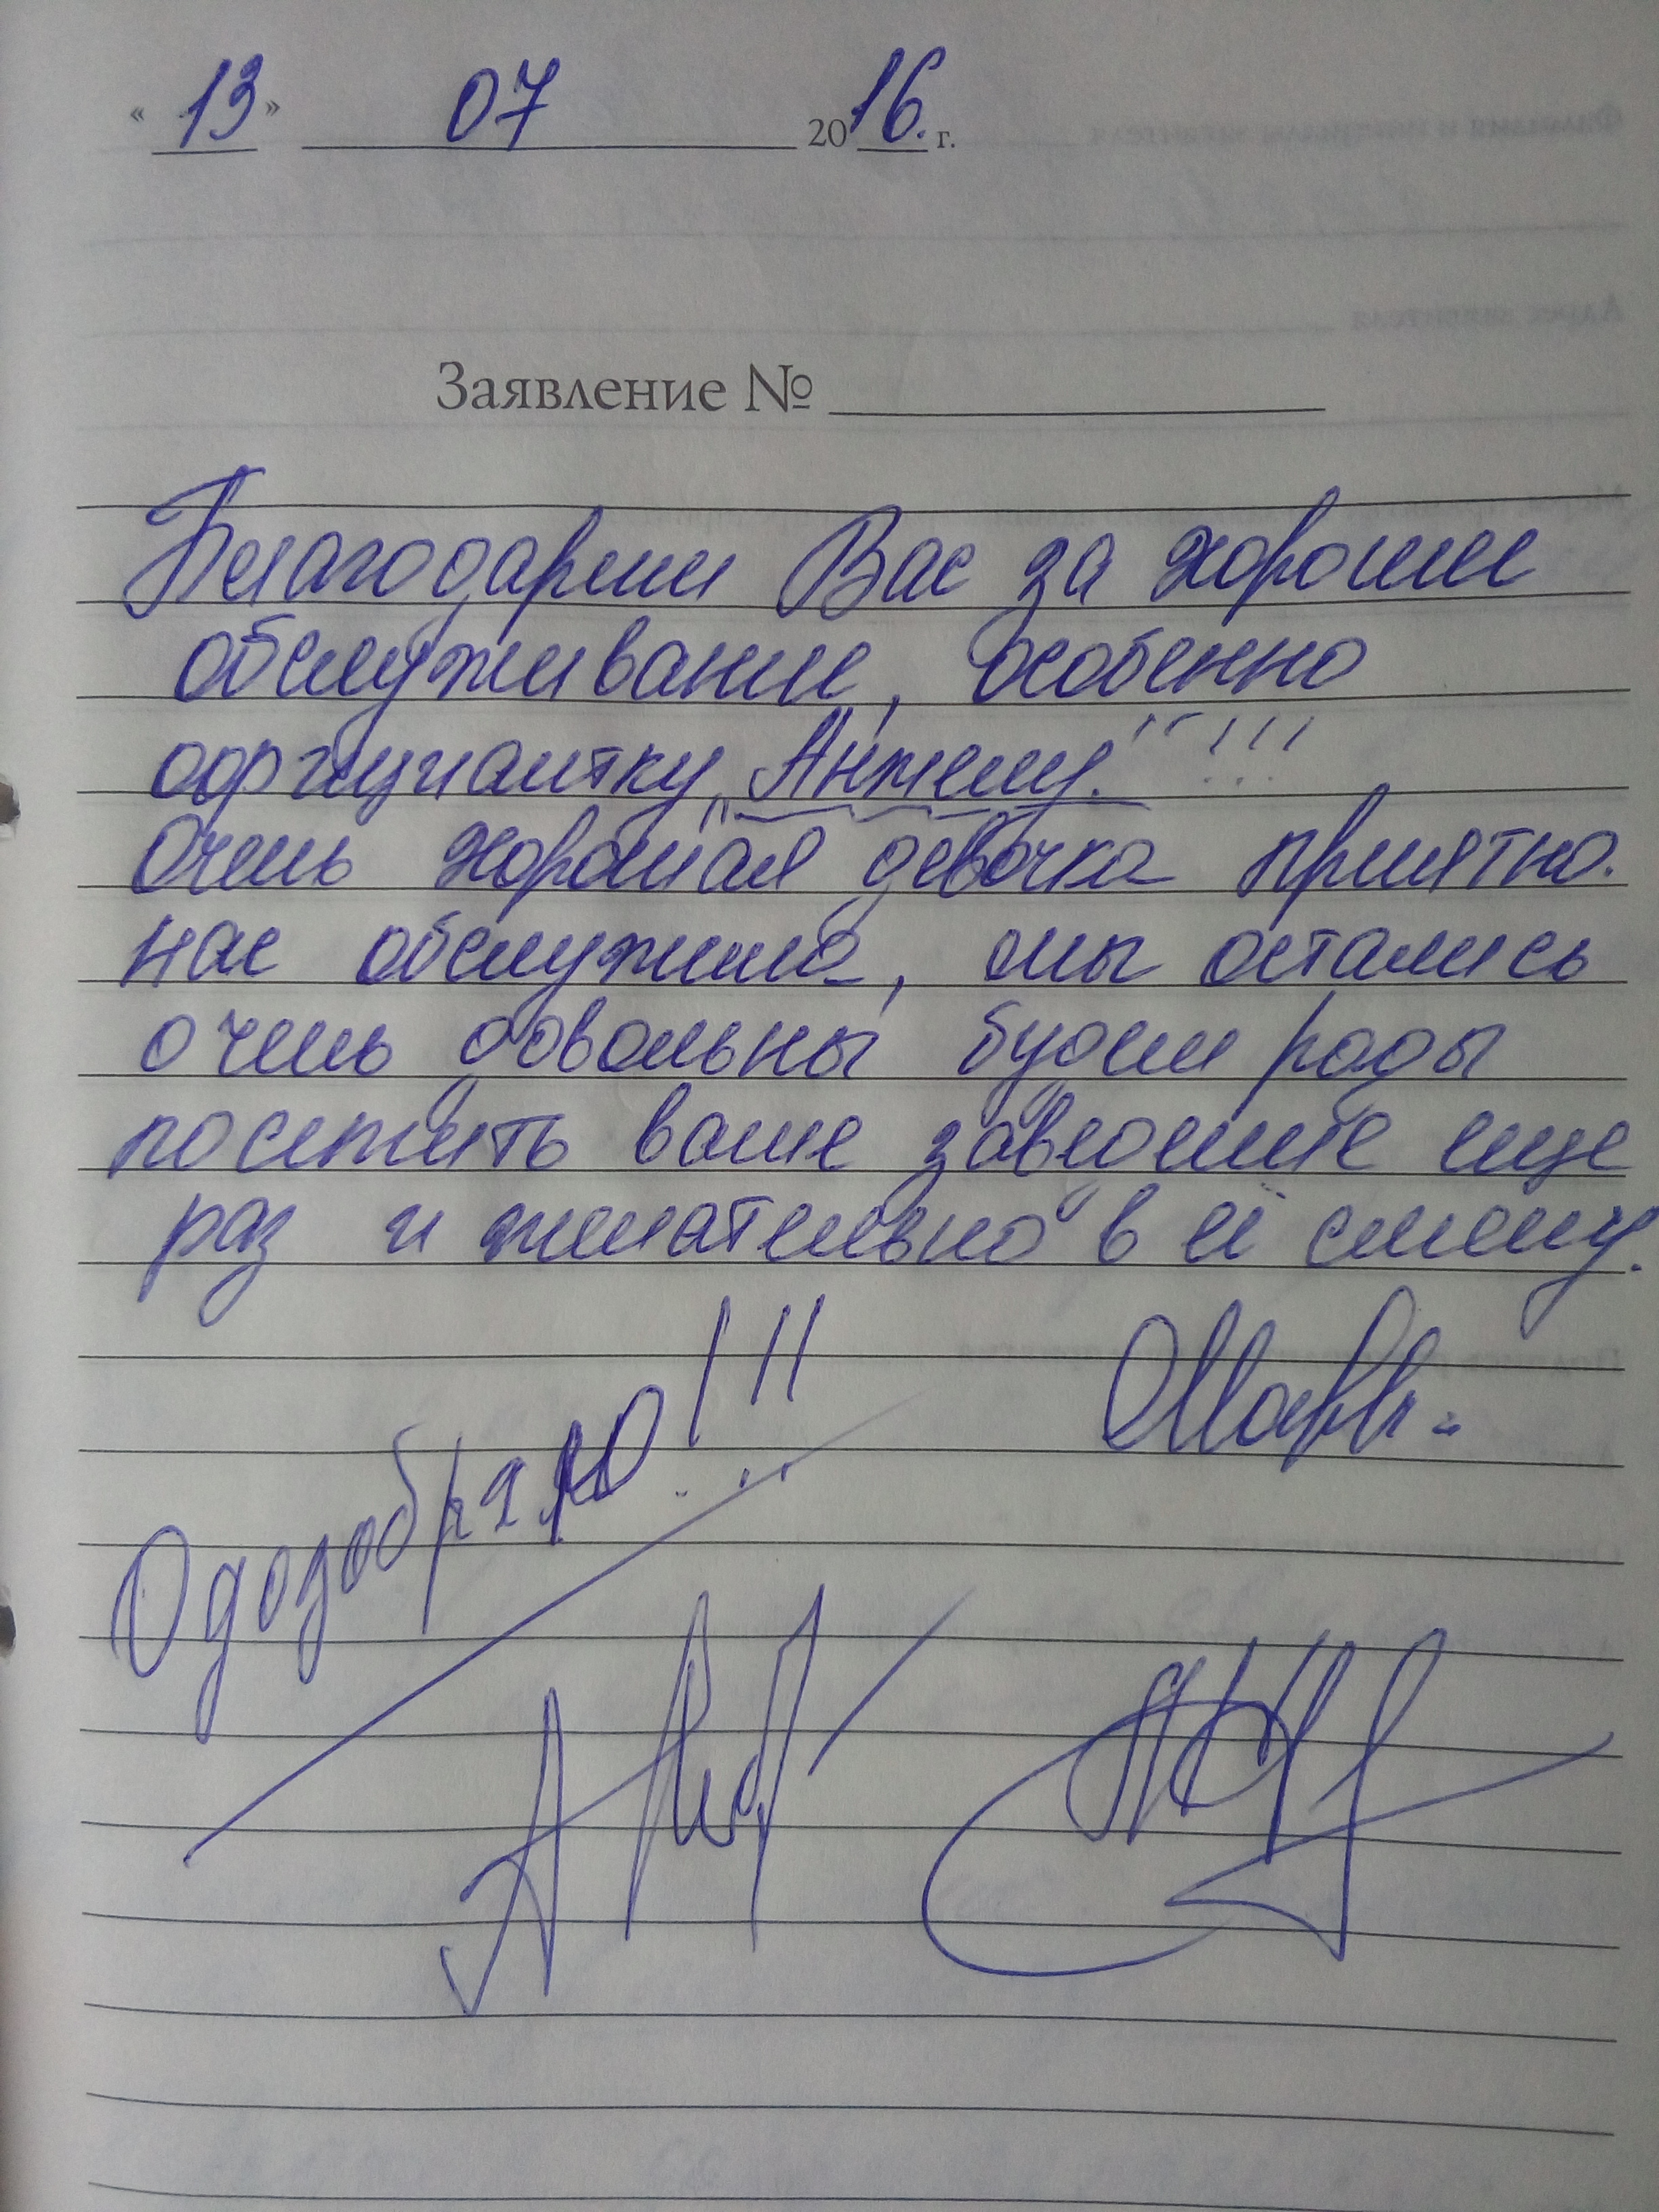 « 13 » 07 2016. г.
Заявление №
Благодарим Вас за хорошее
обслуживание, особенно
оофгициантку „Анжелу.“ !!!
очень хорошая девочка приятно.
нас обслужила, мы остались
очень довольны будем рады
посетить ваше заведение еще
раз и желательно в её смену.
Одозобряю!!!